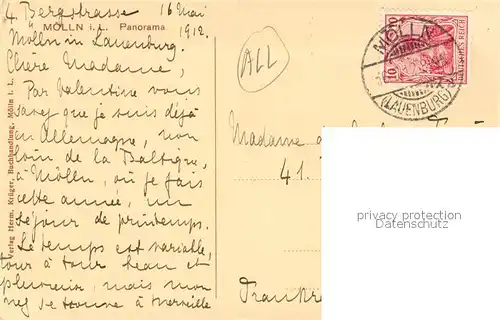 4. Bergstrasse 16 Mai
MÖLLN i. L. Panorama
1912.
Mölln in Lauenburg.
Chere Madame,
Par Valentine vous
savez que je suis déjà
en Allemagne, non
loin de la Baltique,
à Mölln, où je fais
cette année, un
séjour de printemps.
Le temps est variable,
tour à tour beau et
pluvieux, mais mon
neg se trouve à merveille
Verlag Herm. Krüger, Buchhandlung, Mölln i. L.
ALL
10
DEUTSCHES REICH
MÖLLN
(LAUENBURG)
Madame
41.
privacy protection
Datenschutz